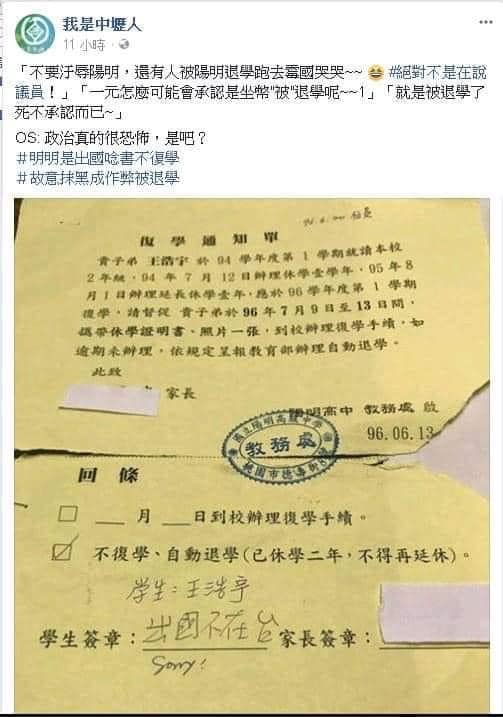 我是中壢人
11 小時 ·
「不要汙辱陽明，還有人被陽明退學跑去霉國哭哭~~ 😄 #絕對不是在說
議員！」「一元怎麼可能會承認是坐幣"被"退學呢~~1」「就是被退學了
死不承認而已~」
OS: 政治真的很恐怖，是吧？
＃明明是出國唸書不復學
＃故意抹黑成作弊被退學
復學通知單
貴子弟 王浩宇 於 94 學年度第 1 學期就讀本校
2 年級，94 年 7 月 12 日辦理休學壹學年，95 年 8
月 1 日辦理延長休學壹年，應於 96 學年度第 1 學期
復學，請督促 貴子弟於 96 年 7 月 9 日至 13 日間，
攜帶休學證明書、照片一張，到校辦理復學手續，如
逾期未辦理，依規定呈報教育部辦理自動退學。
此致
家長
陽明高中 教務處 啟
國立陽明高級中學
教務處
桃園市德壽街8
96.06.13
回 條
□ ___月 ___日到校辦理復學手續。
☑ 不復學、自動退學(已休學二年，不得再延休)。
學生:王浩宇
學生簽章：出國不在台 家長簽章：
Sorry!